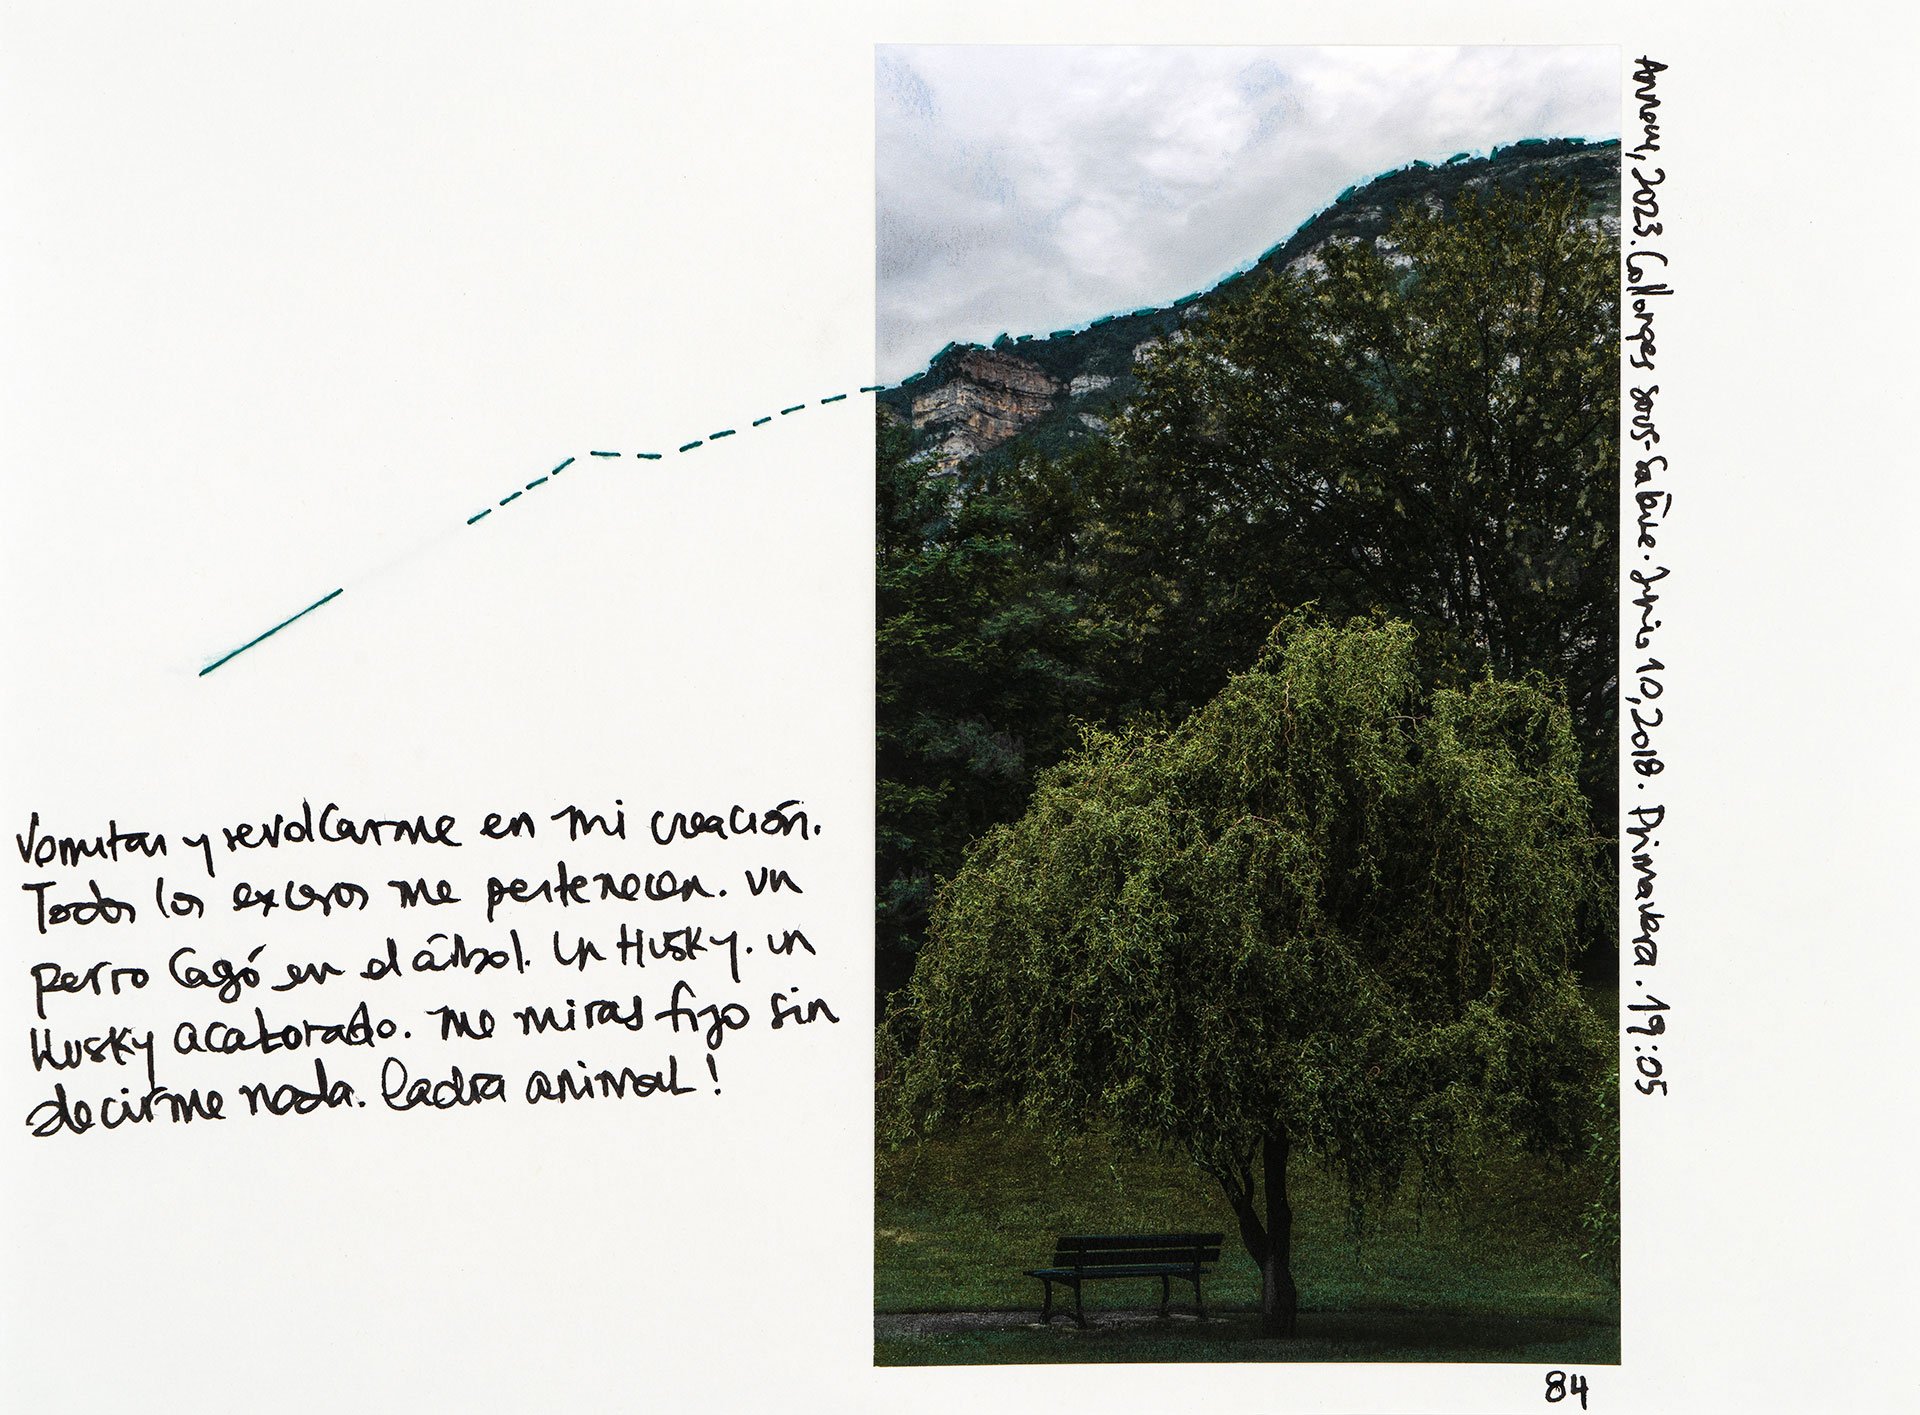 Vomitar y revolcarme en mi creación.
Todos los excesos me pertenecen. un
perro cagó en el árbol. un Husky. un
Husky acalorado. me miras fijo sin
decirme nada. ladra animal!
Annecy, 2023. Collonges sous-Salève. Junio 10, 2018. Primavera. 19:05
84